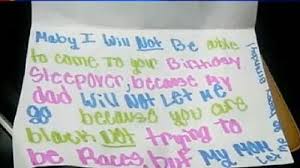 Maby I Will Not Be able
to come to your Birthday
Sleepover, because My
dad Will Not Let Me
go because you are
black Not trying to
be Races, but My MOM